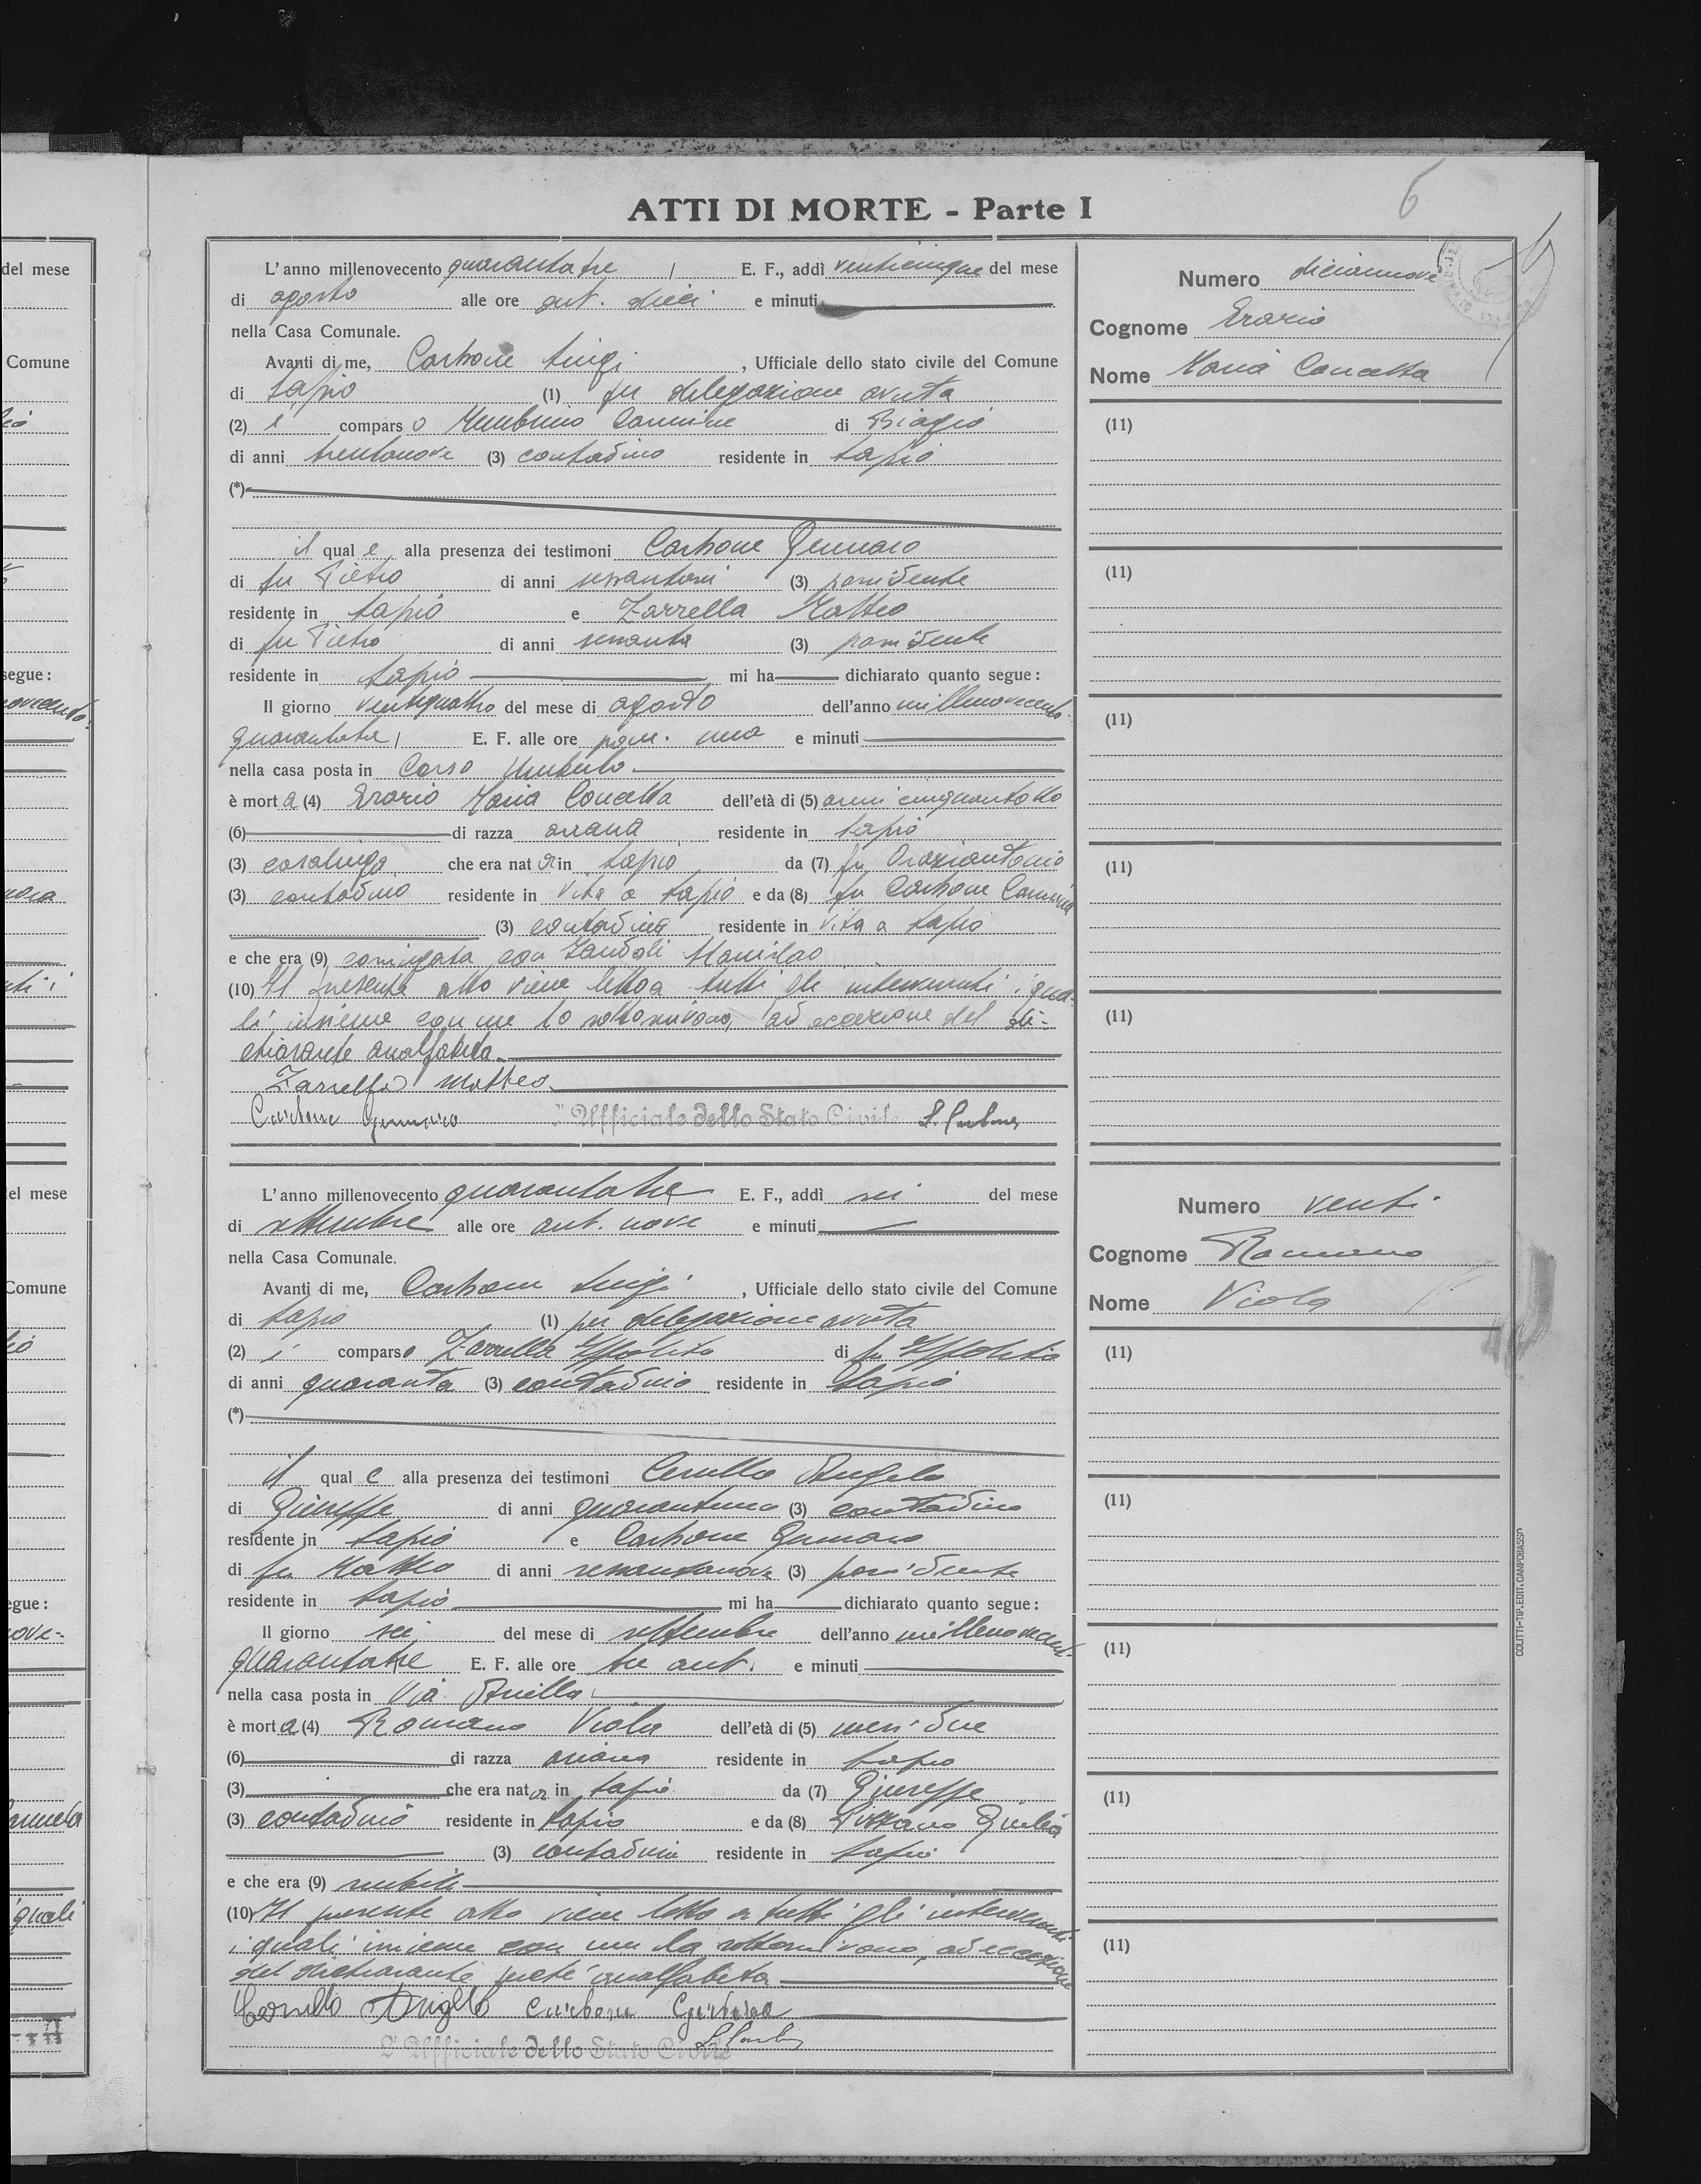 del mese
Comune
segue:
el mese
Comune
egue:
ove-
quali
6
ATTI DI MORTE - Parte I
L'anno millenovecento quarantatre E. F., addì venticinque del mese
di agosto alle ore ant. dieci e minuti
nella Casa Comunale.
Avanti di me, Carbone Luigi, Ufficiale dello stato civile del Comune
di Lapio (1) per delegazione avuta
(2) è comparso Carmine di Biagio
di anni trentanove (3) contadino residente in Lapio
(*)
il quale alla presenza dei testimoni Carbone Gennaro
di fu Pietro di anni (3) possidente
residente in Lapio e Zarrella Matteo
di fu Pietro di anni sessanta (3) possidente
residente in Lapio mi ha dichiarato quanto segue:
Il giorno ventiquattro del mese di agosto dell'anno millenovecento-
quarantatre E. F. alle ore pom. una e minuti
nella casa posta in Corso Umberto
è morta (4) Erario Maria Concetta dell'età di (5) anni cinquantotto
(6) di razza ariana residente in Lapio
(3) casalinga che era nata in Lapio da (7) fu Oraziantonio
(3) contadino residente in vita a Lapio e da (8) fu Carbone Carmina
(3) contadina residente in vita a Lapio
e che era (9) coniugata con Zandoli
(10) Il presente atto viene letto a tutti gli intervenuti i qua-
li insieme con me lo sottoscrivono, ad eccezione del di-
chiarante analfabeta.
Zarrella Matteo
Carbone Gennaro L'Ufficiale dello Stato Civile L. Carbone
Numero diciannove
Cognome Erario
Nome Maria Concetta
(11)
(11)
(11)
(11)
(11)
L'anno millenovecento quarantatre E. F., addì sei del mese
di settembre alle ore ant. nove e minuti
nella Casa Comunale.
Avanti di me, Carbone Luigi, Ufficiale dello stato civile del Comune
di Lapio (1) per delegazione avuta
(2) è comparso Zarrella Ippolito di fu Ippolito
di anni quaranta (3) contadino residente in Lapio
(*)
il quale alla presenza dei testimoni Cerullo Angelo
di Giuseppe di anni quarantuno (3) contadino
residente in Lapio e Carbone Gennaro
di fu Matteo di anni sessantanove (3) possidente
residente in Lapio mi ha dichiarato quanto segue:
Il giorno sei del mese di settembre dell'anno millenovecento-
quarantatre E. F. alle ore tre ant. e minuti
nella casa posta in Via
è morta (4) Romano Viola dell'età di (5) mesi due
(6) di razza ariana residente in Lapio
(3) che era nata in Lapio da (7) Giuseppe
(3) contadino residente in Lapio e da (8) Giulia
(3) contadina residente in Lapio
e che era (9) nubile
(10) Il presente atto viene letto a tutti gli intervenuti
i quali insieme con me lo sottoscrivono, ad eccezione
del dichiarante perché analfabeta
Cerullo Angelo Carbone Gennaro
L'Ufficiale dello Stato Civile L. Carbone
Numero venti
Cognome Romano
Nome Viola
(11)
(11)
(11)
(11)
(11)
COLITTI-TIP. EDIT. CAMPOBASSO